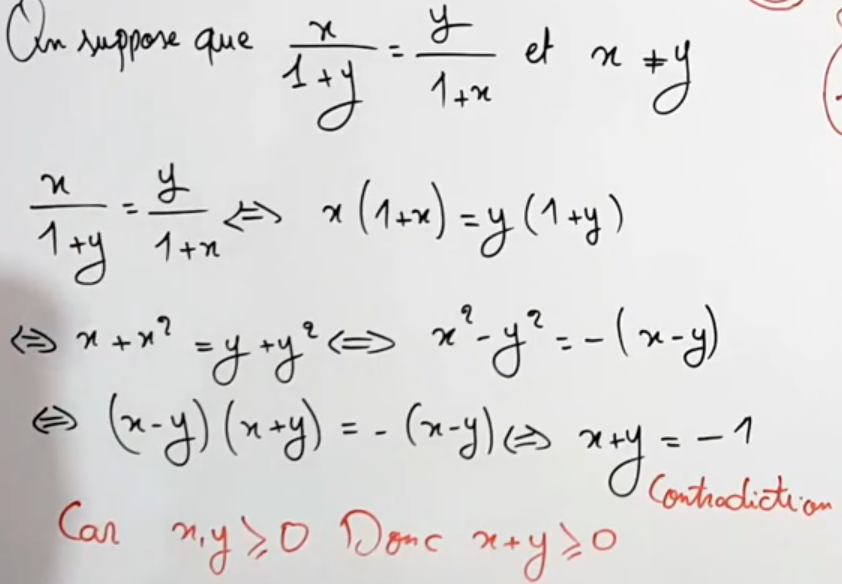 On suppose que x/(1+y) = y/(1+x) et x ≠ y
x/(1+y) = y/(1+x) ⇔ x(1+x) = y(1+y)
⇔ x + x² = y + y² ⇔ x² - y² = -(x-y)
⇔ (x-y)(x+y) = -(x-y) ⇔ x+y = -1
Contradiction
Car x,y ⩾ 0 Donc x+y ⩾ 0